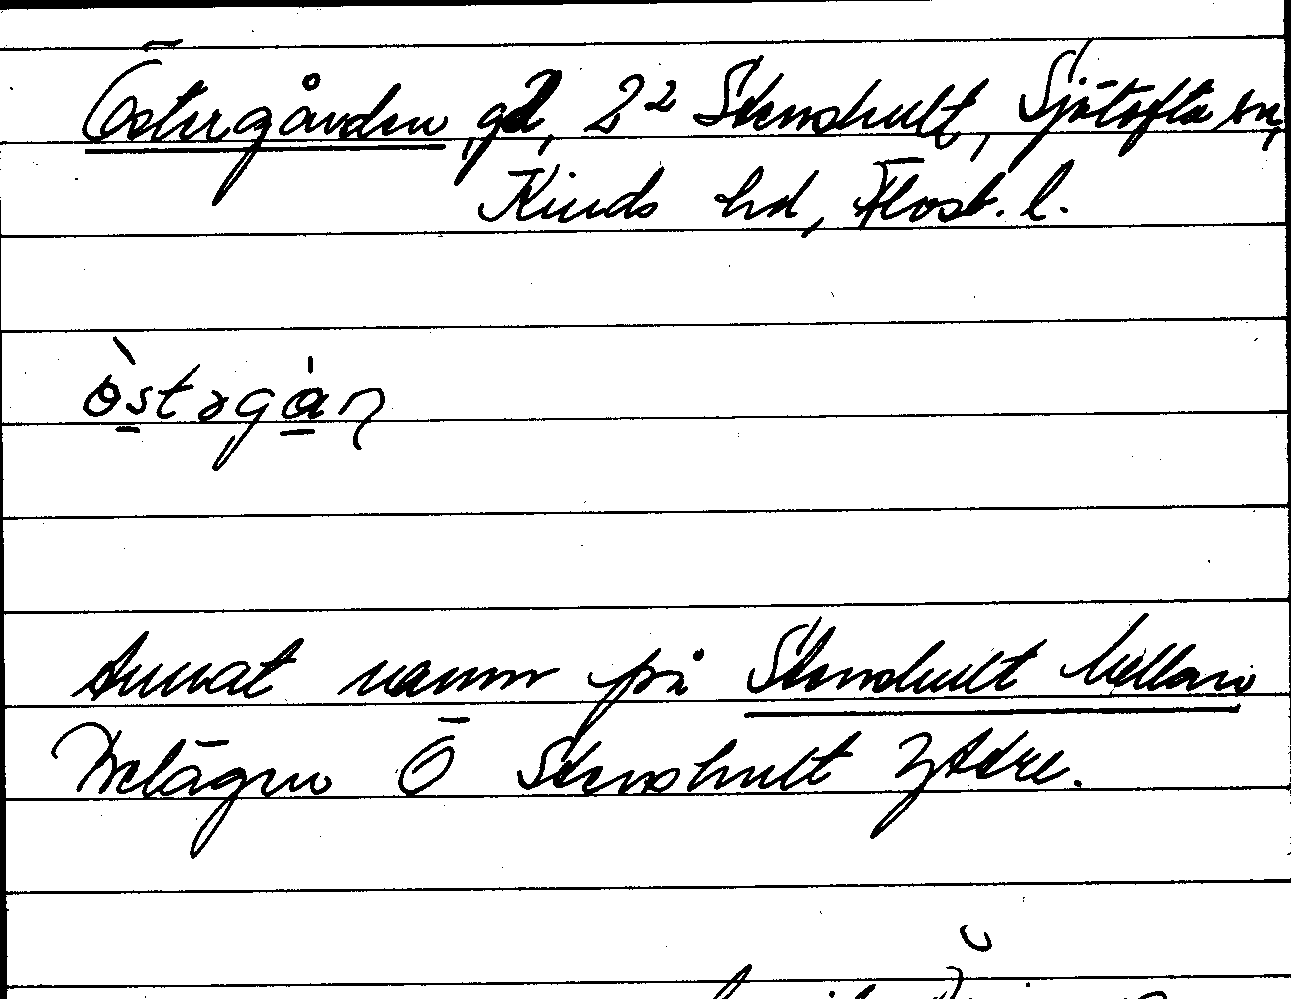 Östergården, gd, 2² Stenshult, Sjötofta sn,
Kinds hd, Älvsb. l.
östərgàɳ
Annat namn på Stenshult Mellan
Belägen Ö Stenshult Yttre.